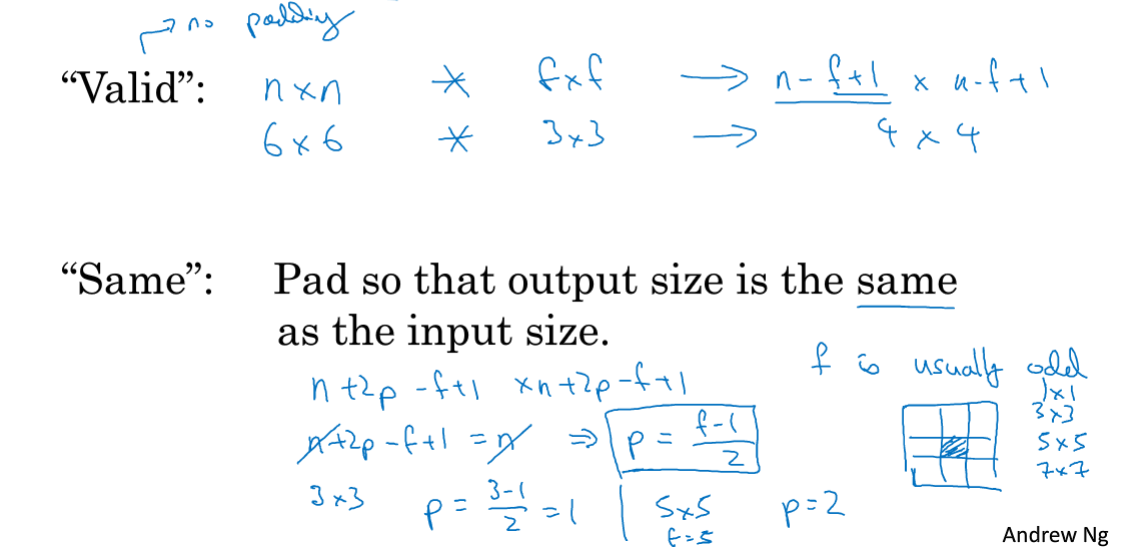 → no padding
“Valid”: n×n * f×f → n-f+1 × n-f+1
6×6 * 3×3 → 4×4
“Same”: Pad so that output size is the same
as the input size.
n+2p-f+1 ×n+2p-f+1
n+2p-f+1 = n ⇒ p = (f-1)/2
3×3 p = (3-1)/2 = 1 | 5×5 p=2
f=5
f is usually odd
1×1
3×3
5×5
7×7
Andrew Ng